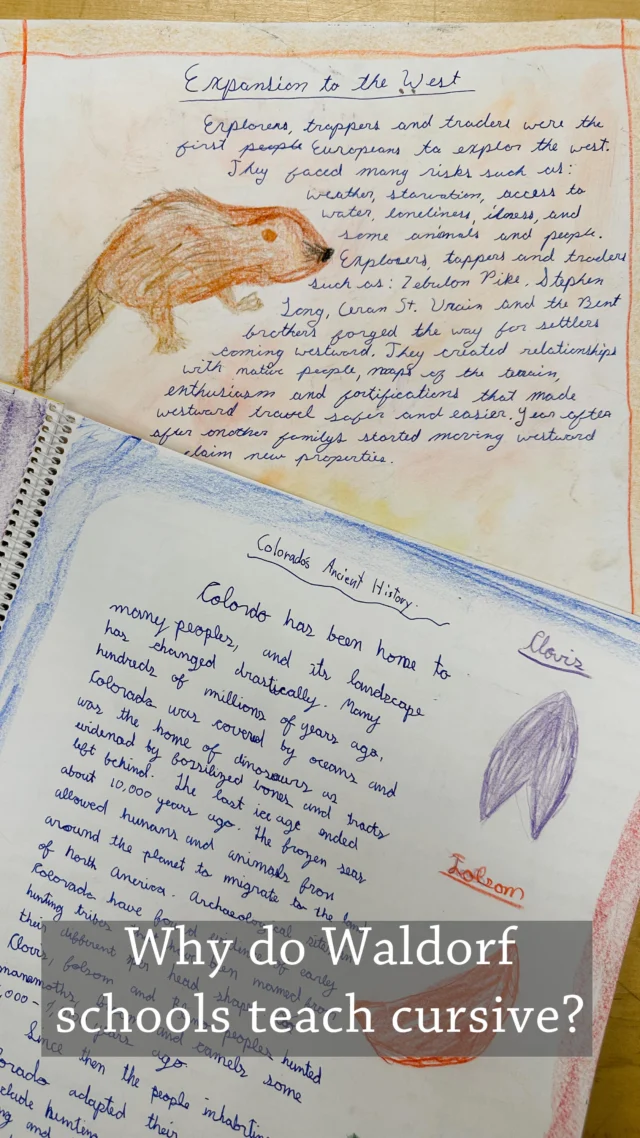 Expansion to the West
Explorers, trappers and traders were the
first people Europeans to explor the west.
They faced many risks such as:
weather, starvation, access to
water, loneliness, idness, and
some animals and people.
Explosers, tappers and traders
such as: Zebulon Pike, Stephen
Long, Ceran St. Vrain and the Bent
brothers forged the way for settlers
coming westward. They created relationships
with native people, maps of the terrain,
enthusiasm and fortifications that made
westward travel safer and easier. Year after
after another familys started moving westward
claim new properties.
Colorados Ancient History.
Colordo has been home to
many peoples, and its landscape
has changed drastically. Many
hundreds of millions of years ago,
Colorado was covered by oceans and
was the home of dinosaurs as
widenad by fossilized bones and tracts
left behind. The last ice age ended
about 10,000 years ago. The frozen seas
allowed humans and animals from
around the planet to migrate to the land
of North America. Archaeological
Colorado have found evidence of early
hunting tribes named from
their different head shaps
Clovis, folsom and peoples hunted
mamoths, and camels some
years ago
Since then the people inhabiting
adapted their
Clovis
Folsom
Why do Waldorf
schools teach cursive?